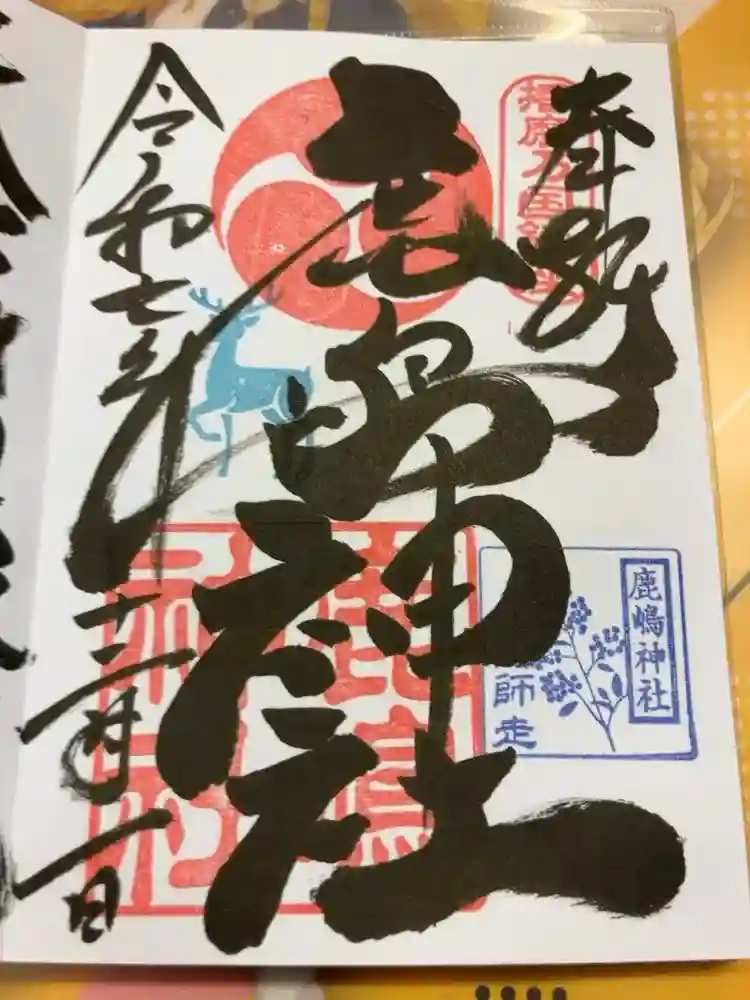 奉拝
鹿嶋神社
令和七年
十二月一日
鹿嶋神社
師走
鹿嶋
神社